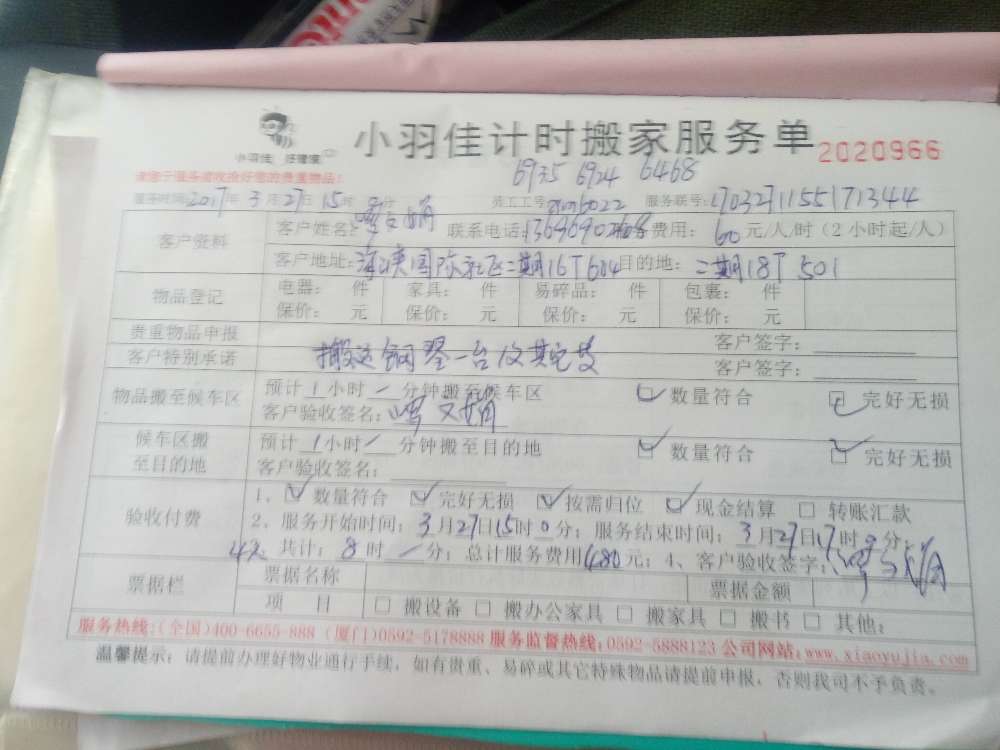 小羽佳计时搬家服务单 2020966
小羽佳
请您于服务前收拾好您的贵重物品!
6935 6924 6468
服务时间:2017年3月27日15时 分 员工工号: 6022 服务联号:170327115517 1344
客户资料
客户姓名: 联系电话: 费用: 60元/人/时(2小时起/人)
客户地址:海峡国际社区二期16T604目的地: 二期18T 501
物品登记
电器: 件 家具: 件 易碎品: 件 包裹: 件
保价: 元 保价: 元 保价: 元 保价: 元
贵重物品申报 客户签字:
客户特别承诺 搬运钢琴一台及其它 客户签字:
物品搬至候车区
预计1小时/分钟搬至候车区 数量符合 完好无损
客户验收签名:
候车区搬至目的地
预计1小时/分钟搬至目的地 数量符合 完好无损
客户验收签名:
验收付费
1、数量符合 完好无损 按需归位 现金结算 转账汇款
2、服务开始时间:3月27日15时0分;服务结束时间:3月27日17时0分;
共计:8时/分;总计服务费用480元;4、客户验收签字:
票据栏
票据名称 票据金额
项目 搬设备 搬办公家具 搬家具 搬书 其他:
服务热线:(全国)400-6655-888 (厦门)0592-5178888 服务监督热线:0592-5888123 公司网站:www.xiaoyujia.com
温馨提示:请提前办理好物业通行手续,如有贵重、易碎或其它特殊物品请提前申报,否则我司不予负责。